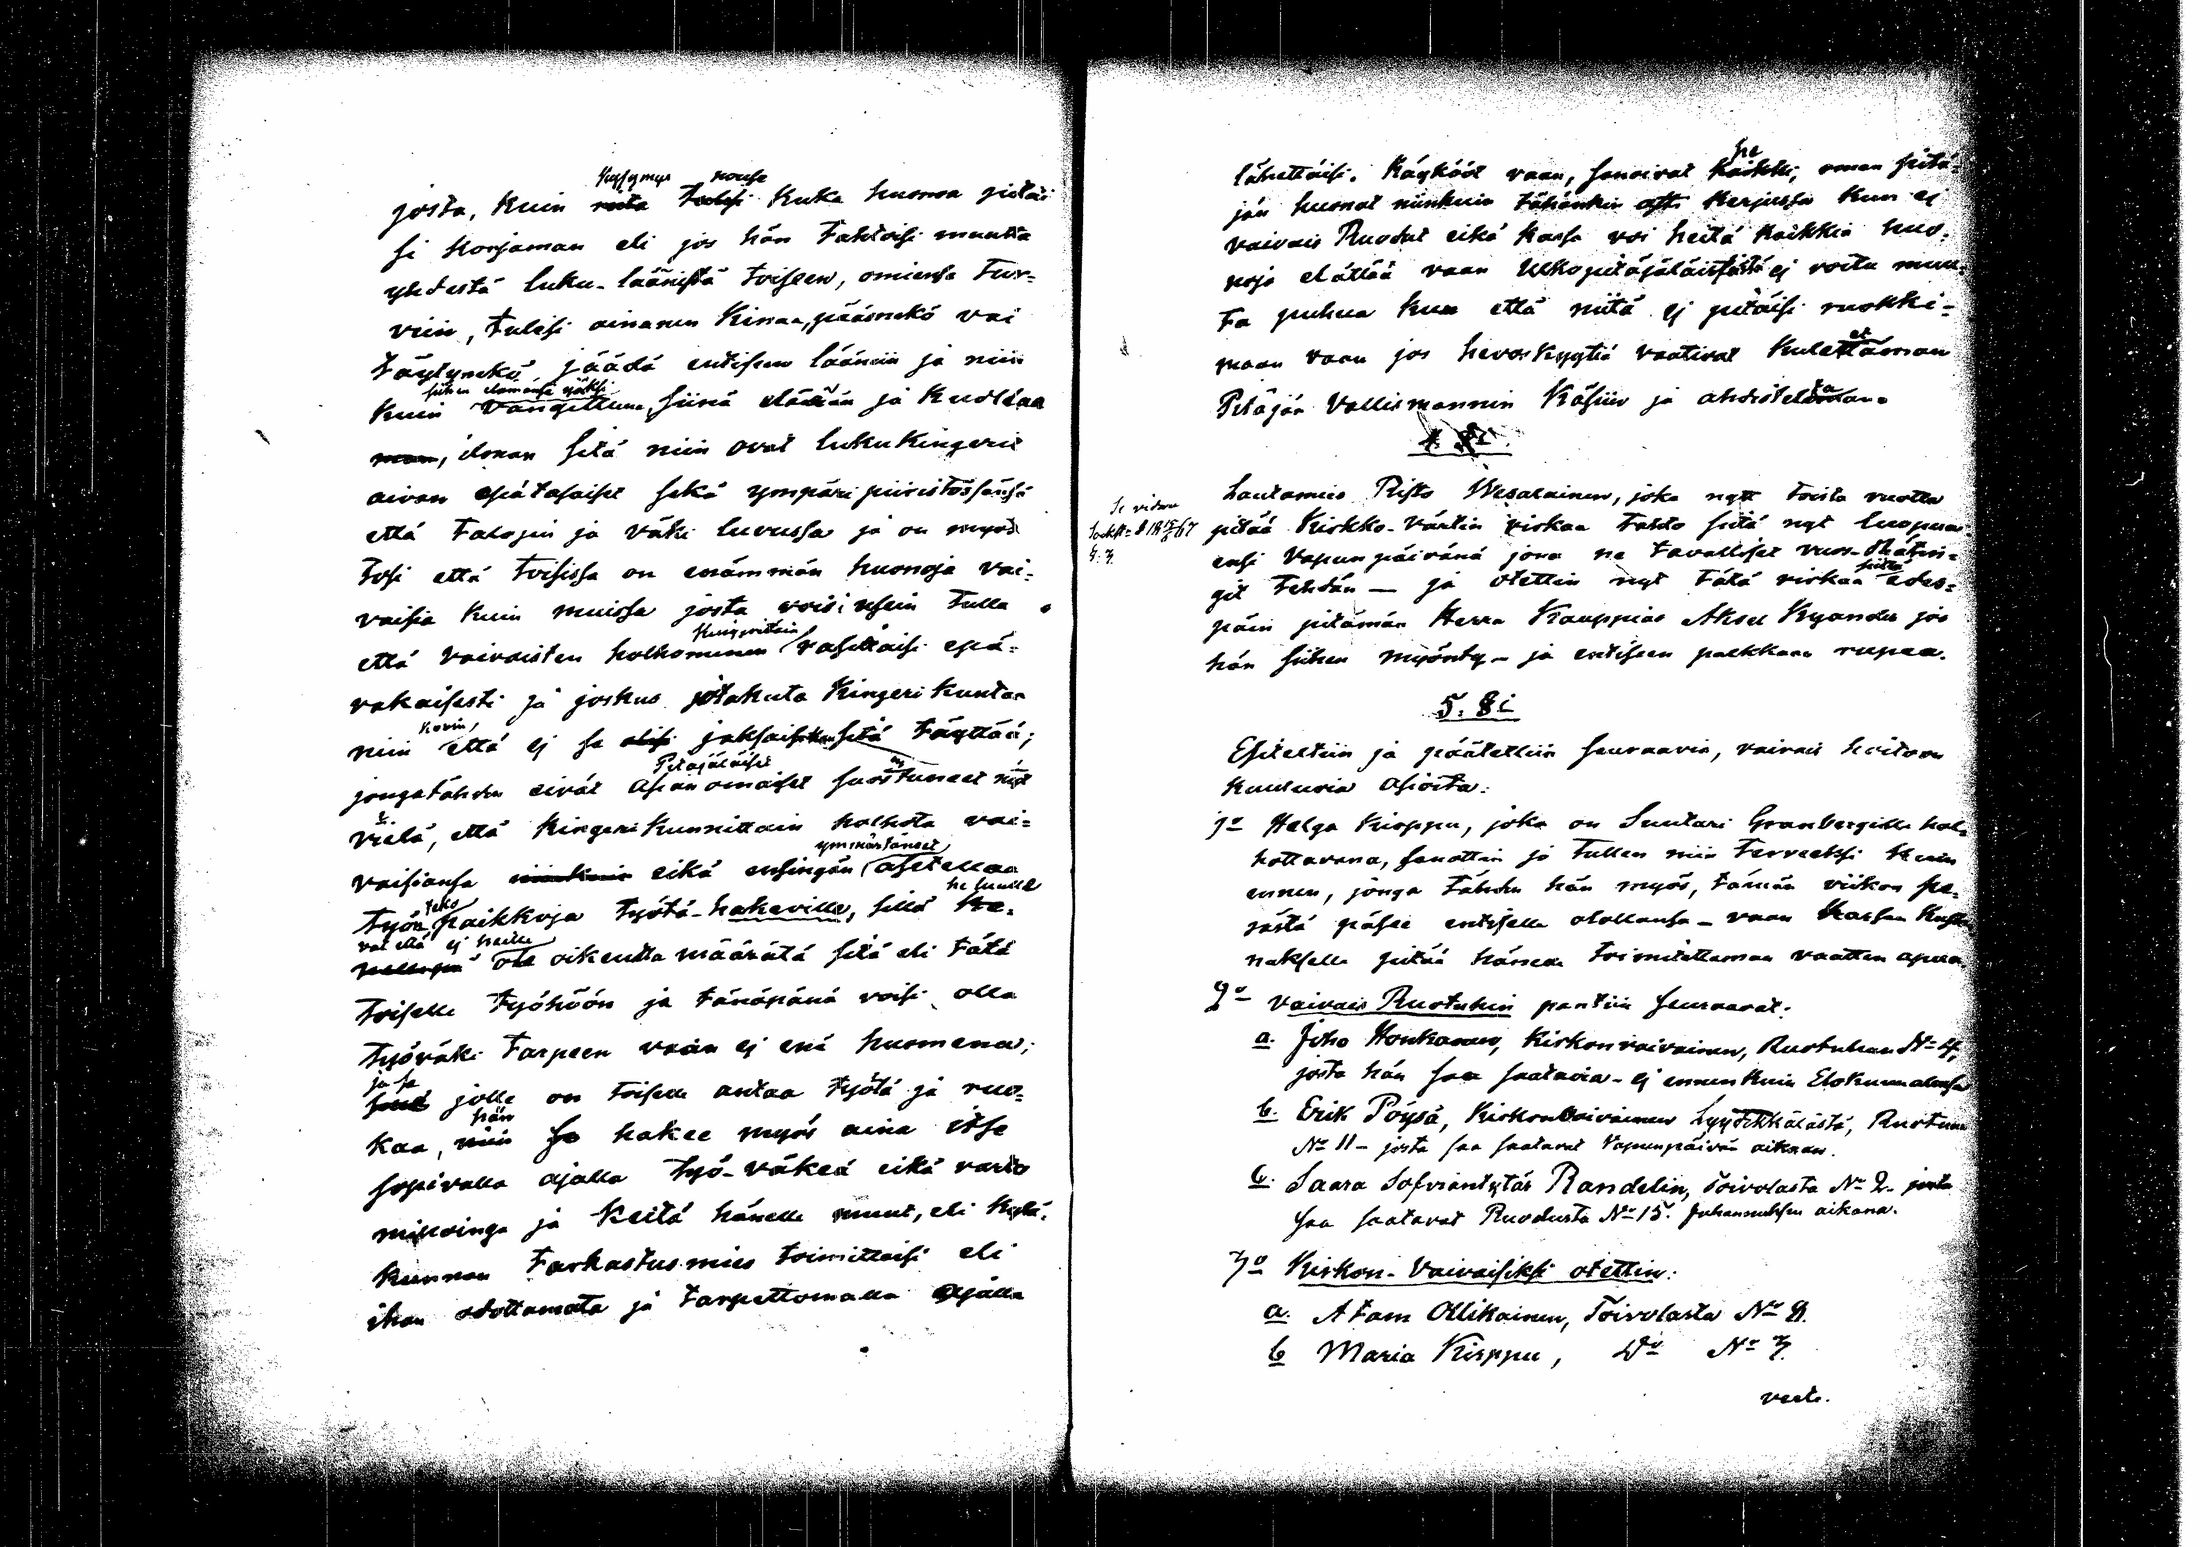 Kysymys nousse
josta, kuin niitä tulisi kuka huonoa pitäi
si korjaman eli jos hän tahtoisi muutta
yhdestä luku-läänistä toiseen, omiensa tur-
viin, tulisi ainanen kinaa, pääsnekö vai
täytynekö jäädä entiseen lääniin ja niin
siihen elämänsä ijäksi
kuin vangittuna, siinä elää ja kuollaa
man, ilman sitä niin ovat lukukingerit
aivan epätasaiset sekä ympäri piiristössänsä
että talojen ja väki luvussa ja on myös
tosi että toisissa on enämmän huonoja vai-
vaisia kuin muissa josta voisi usein tulla
kingerittäin
että vaivaisten holhominen rasittaisi epä-
vakaisesti ja joskus jotakuta kingeri kuntaa
kovin,
niin että ej se olisi jaksaisikan sitä täyttää;
Pitäjäläiset
jongatähden eivät asianomaiset suostuneet nyt
vielä, että kingerikunnittain holhota vai-
ymmärtäneet
vaisiansa niinkuin eikä ensingän asetellaa
teko he luulle
työn paikkoja työtä-hakeville, sillä he-
vat että ej heille
ole oikeutta määrätä sitä eli tätä
toiselle työhöön ja tänäpänä voisi olla
työväki tarpeen vaan ej enä huomena;
ja se
jolle on toiselle antaa työtä ja ruo-
hän
kaa, niin se hakee myös aina itse
sopivalla ajalla työ-väkeä eikä varto
milloinga ja keitä hänelle muut, eli kylä-
kunnan tarkastusmies toimittaisi eli
ihan odottamata ja tarpettomalla ajalla
he
lähettäisi. Käykööt vaan, sanoivat kaikki, oman pitä-
jän huonot niinkuin tähänkin asti kerjussa kun ej
vaivais Ruodut eikä kassa voi heitä kaikkia huo-
noja elättää vaan Ulkopitäjäläisistä ej voitu muu-
ta puhua kun että niitä ej pitäisi ruokki-
et
maan vaan jos hevoskyytiä vaativat kulettaman
Pitäjän Vallesmannin käsiin ja ahdistel
4. §i.
Lautamies Risto Wesalainen, joka nyt toista vuotta
pitää Kirkko-värtin virkaa tahto siitä nyt luopua
ensi Vapun päivänä jona ne tavalliset vuos-
siitä
git tehdän — ja otettin nyt tätä virkaa edes-
päin pitämän Herra Kauppias Aksel Kyander jos
hän siihen myönty – ja entiseen palkkaan rupea.
5. §i
Esiteltiin ja päätettiin seuraavia, vaivais hoitoon
kuuluvia asioita:
1o Helga Kirppu, joka on Suutari Granbergille hol-
hottavana, sanottin jo tullen niin terveeksi kuin
ennen, jonga tähden hän myös, tämän viikon pe-
rästä pääsee entiselle olollansa – vaan kassan kus-
nukselle pitää hänelle toimitettaman vaatten apua
2o Vaivais Ruotuhin pantiin seuraavat:
a. Juho Honkanen, Kirkonvaivainen, Ruotuhun No 4,
josta hän saa saatavia – ej ennenkuin Elokuun alussa
b. Erik Pöysä, Kirkonvaivainen Lyytikkälästä, Ruotuun
No 11 – josta saa saatavat Vapunpäivän aikaan.
c. Saara Sofiantytär Randelin, Toivolasta No 2. josta
saa saatavat Ruodusta No 15. Juhannuksen aikana.
3o Kirkon-Vaivaisiksi otettin:
a. Atam Ollikainen, Toivolasta No 8.
b Maria Kirppu, Do No 7.